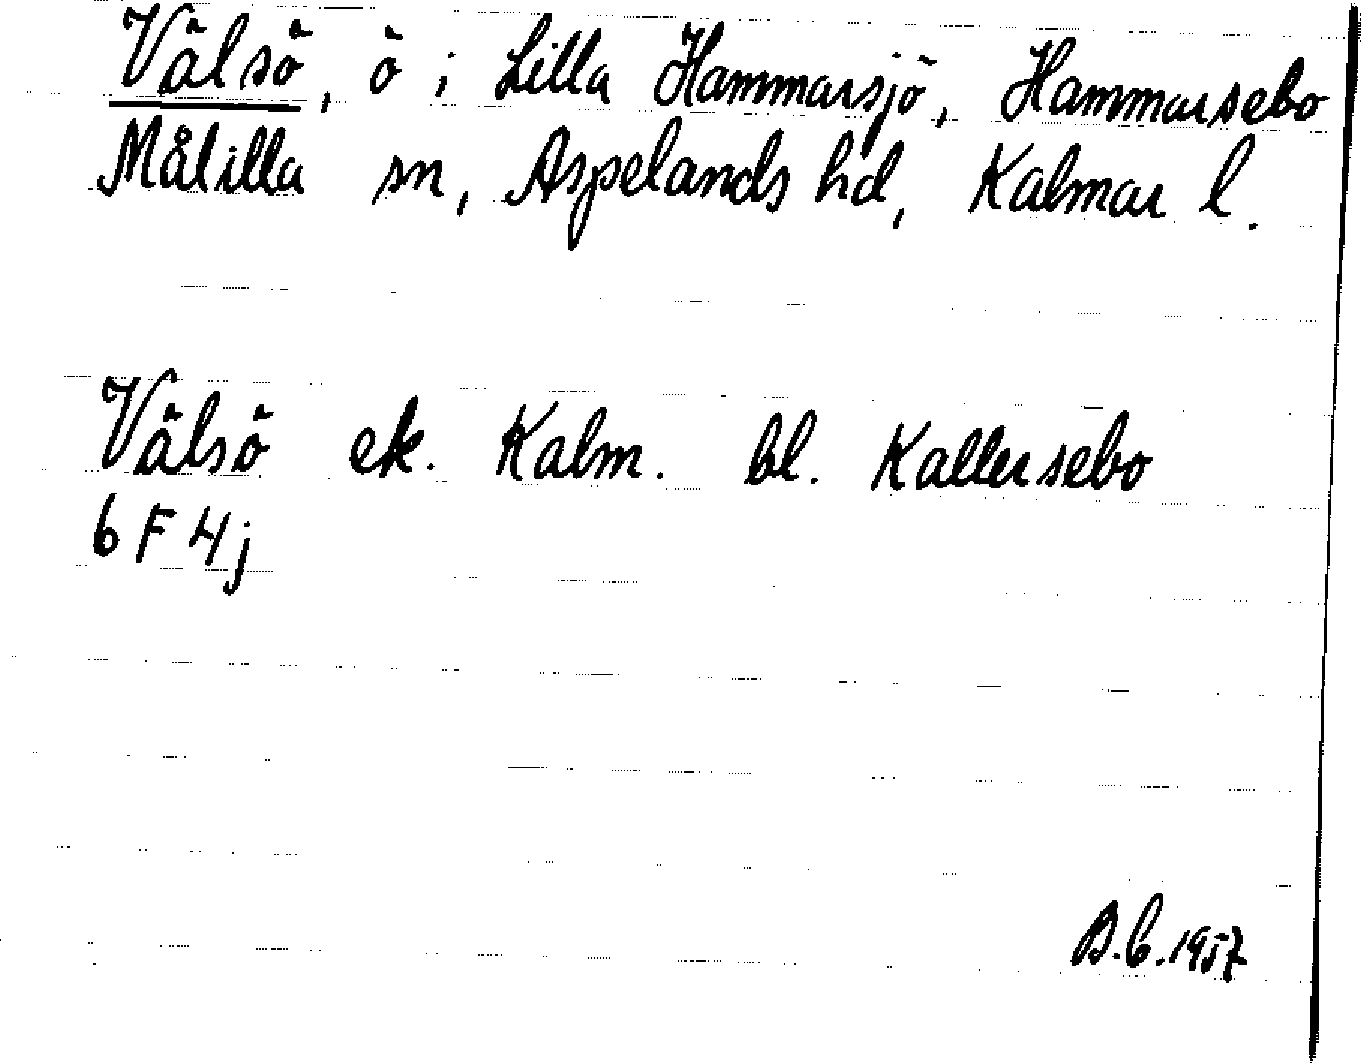 Välsö, ö i Lilla Hammarsjö, Hammarsebo
Målilla sn, Aspelands hd, Kalmar l.
Välsö ek. Kalm. bl. Kallersebo
6 F 4j
B.b.1957